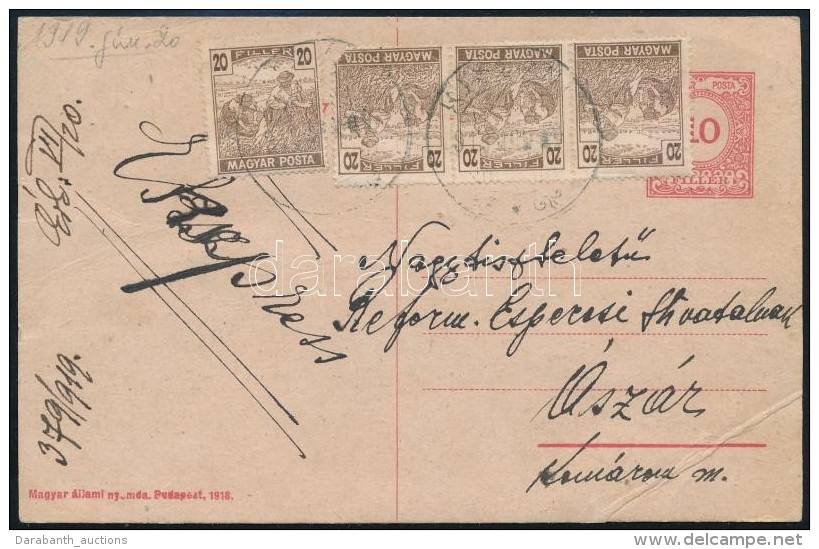 1919. jún. 20
FILLER
20 20
MAGYAR POSTA
MAGYAR POSTA
20 FILLER 20
MAGYAR POSTA
20 FILLER 20
MAGYAR POSTA
20 FILLER 20
POSTA
10
FILLER
Érk. VI/20.
379/919.
Nagytiszteletű
Reform. Esperesi Hivatalnak
Ószár
Komárom m.
Magyar állami nyomda. Budapest, 1918.
darabanth
Darabanth_auctions
delcampe.net